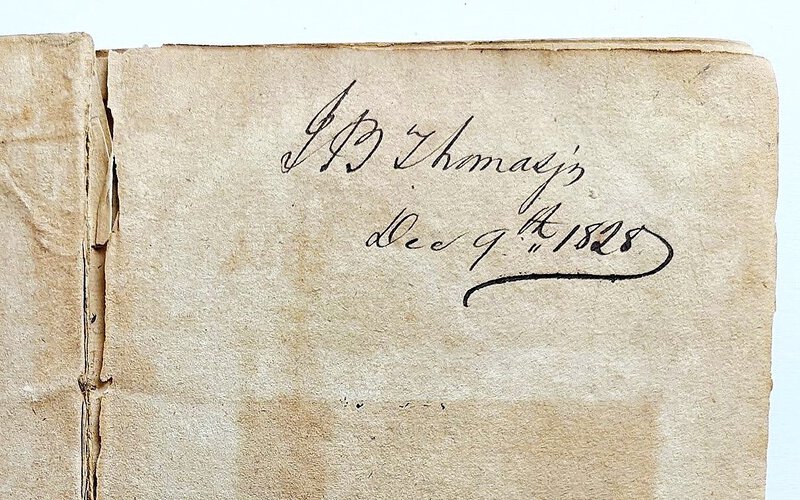 J B Thomas jr
Dec 9th 1828